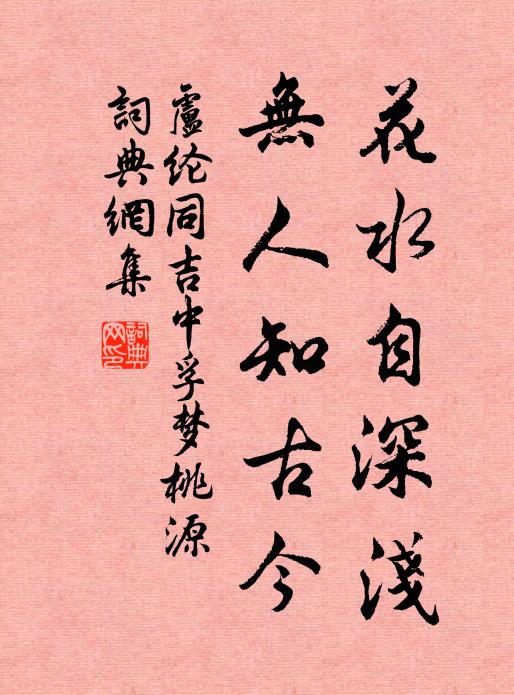 花水自深淺
無人知古今
盧纶同吉中孚梦桃源
詞典網集
詞典网印